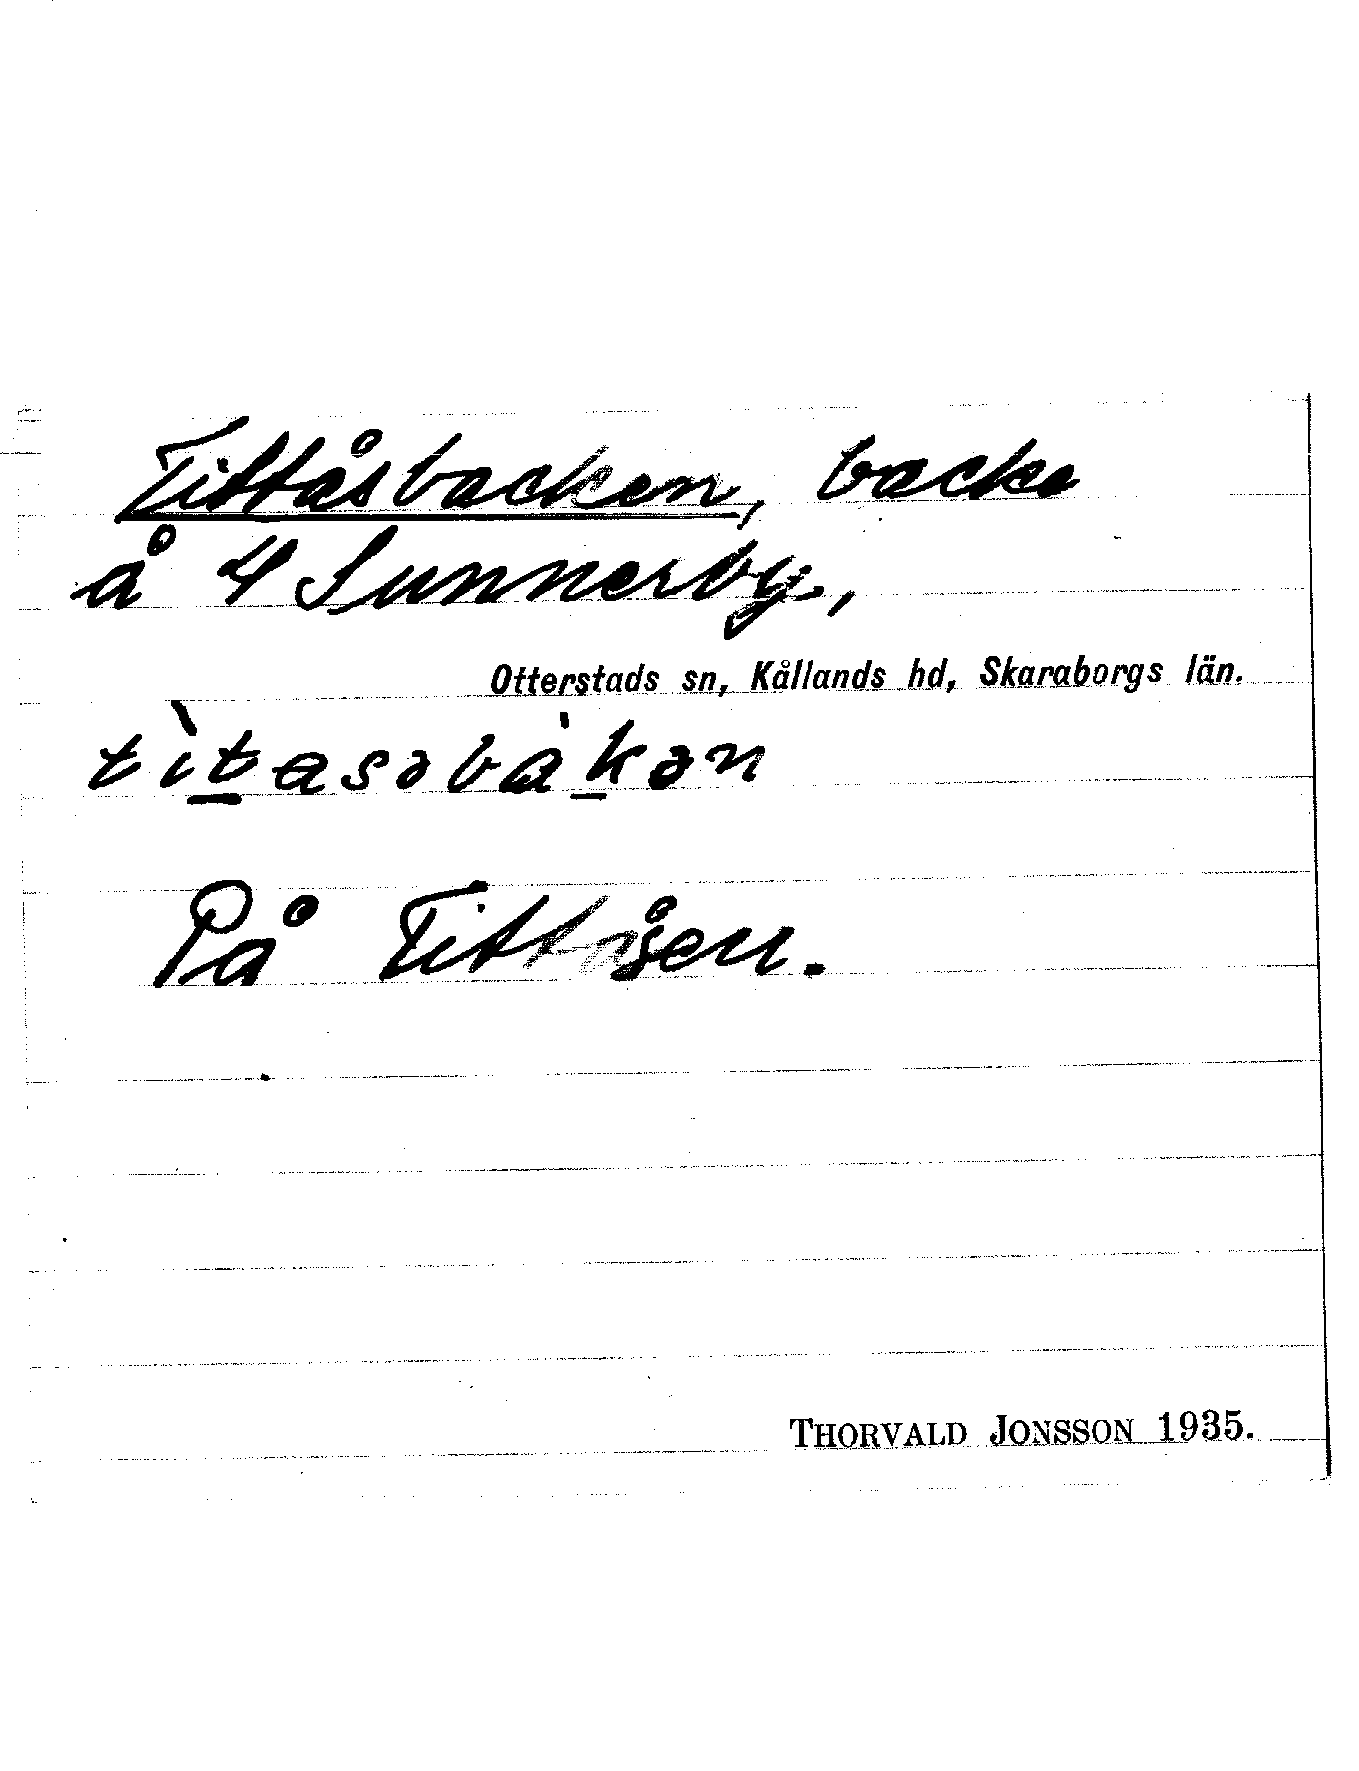 Tittåsbacken, backe
å 4 Sunnerby,
Otterstads sn, Kållands hd, Skaraborgs län.
tìt̲asəbàk̲ən
På Tittåsen.
THORVALD JONSSON 1935.